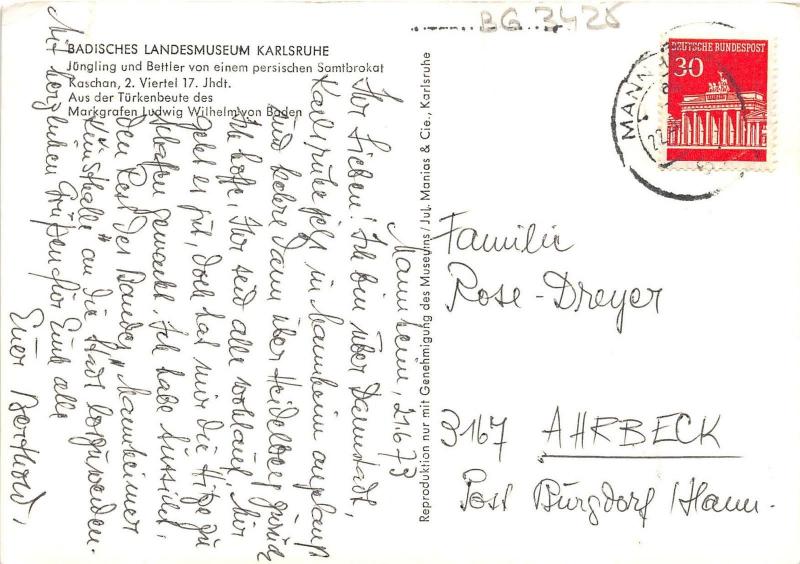 BG 3428
BADISCHES LANDESMUSEUM KARLSRUHE
Jüngling und Bettler von einem persischen Samtbrokat
Kaschan, 2. Viertel 17. Jhdt.
Aus der Türkenbeute des
Markgrafen Ludwig Wilhelm von Baden
Mannheim, 21.6.73
Ihr Lieben! Ich bin über Darmstadt,
Karlsruhe jetzt in Mannheim angelangt
und kehre dann über Heidelberg zurück
Ich hoffe, Ihr seid alle wohlauf. Mir
geht es gut, doch hat mir die Hitze zu
schaffen gemacht. Ich habe Aussicht,
den Rest des Bandes "Mannheimer
Kunsthalle" an die Stadt loszuwerden.
Mit herzlichen Grüßen für Euch alle
Euer Berthold.
Reproduktion nur mit Genehmigung des Museums / Jul. Manias & Cie., Karlsruhe
DEUTSCHE BUNDESPOST
30
MANNH
22.
Familie
Rose-Dreyer
3167 AHRBECK
Post Burgdorf/Hann.